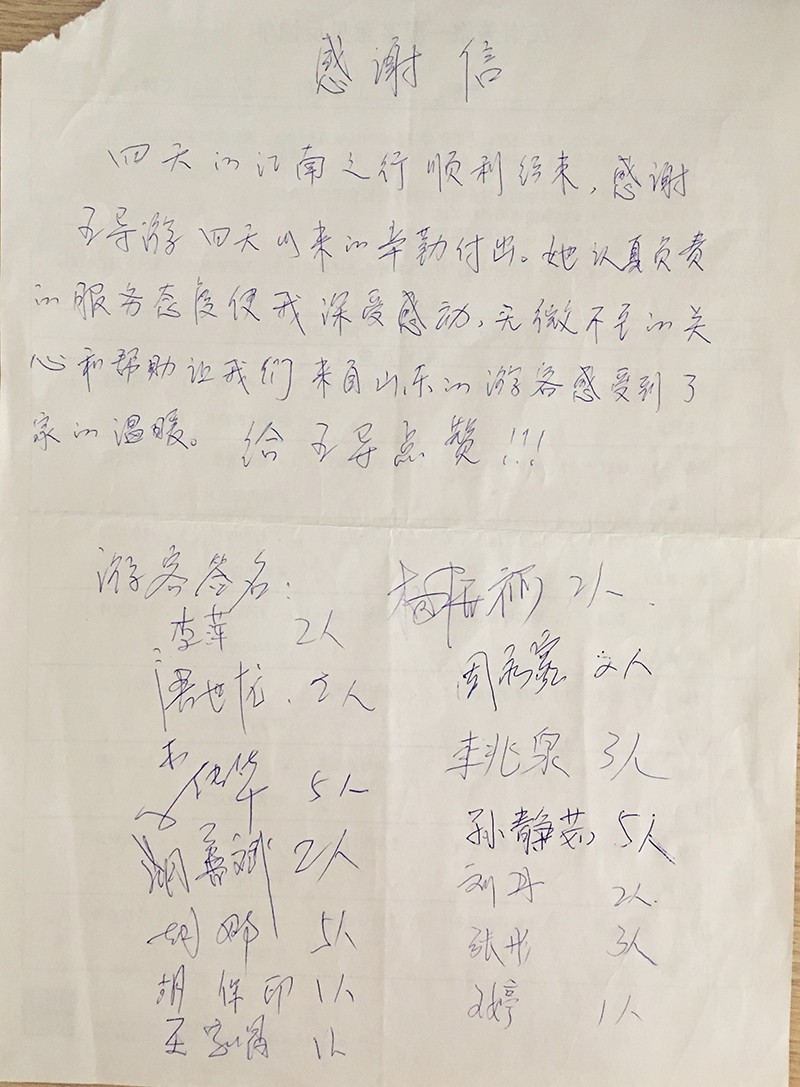 感谢信
四天的江南之行顺利结束,感谢
王导游四天以来的辛勤付出。她认真负责
的服务态度使我深受感动,无微不至的关
心和帮助让我们来自山东的游客感受到了
家的温暖。给王导点赞!!!
游客签名:
李萍 2人
2人
华 5人
胡善斌 2人
胡娜 5人
胡保印 1人
王 1人
2人.
周 2人
李兆泉 3人
孙静茹 5人
刘丹 2人.
张彤 3人
王婷 1人